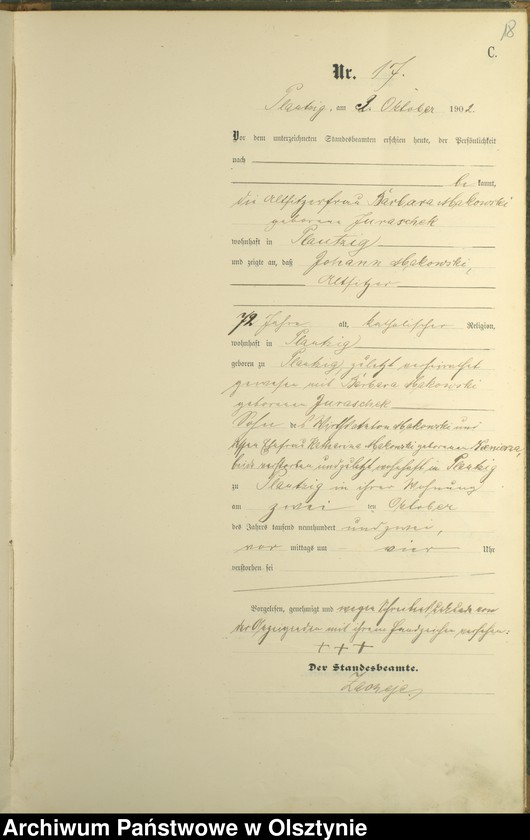 18
C.
Nr. 17.
Plautzig, am 2. Oktober 1902.
Vor dem unterzeichneten Standesbeamten erschien heute, der Persönlichkeit
nach
be kannt,
die Altsitzerfrau Barbara Makowski
geborene Juraschek
wohnhaft in Plautzig
und zeigte an, daß Johann Makowski,
Altsitzer
72 Jahre alt, katholischer Religion,
wohnhaft in Plautzig
geboren zu Plautzig, zuletzt verheirathet
gewesen mit Barbara Makowski
geborenen Juraschek
Sohn des Wirths Anton Makowski und
dessen Ehefrau Katharina Makowski geborenen
beide verstorben und zuletzt wohnhaft in Plautzig
zu Plautzig in ihrer Wohnung
am zwei ten Oktober
des Jahres tausend neunhundert und zwei,
vor mittags um vier Uhr
verstorben sei
Vorgelesen, genehmigt und wegen Schreibunkunde von
der Anzeigenden mit ihrem Handzeichen versehen:
+++
Der Standesbeamte.
Archiwum Państwowe w Olsztynie